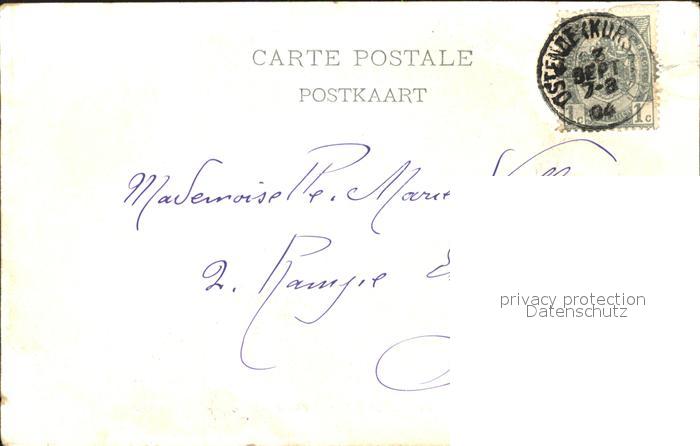 CARTE POSTALE
POSTKAART
OSTENDE (KURS
3
SEPT
7-8
04
1c 1c
Mademoiselle Marie
2. Rampe
privacy protection
Datenschutz